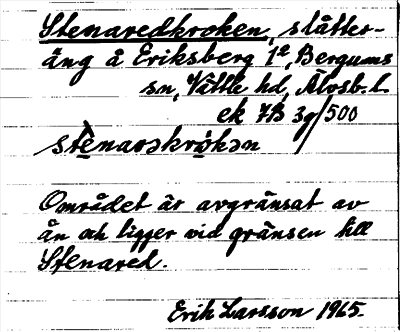 Stenaredkroken, slåtter-
äng å Eriksberg 1e, Bergums
sn, Vättle hd, Älvsb. l.
ek 7B 3g/500
stènarəkrọ̀kən
Området är avgränsat av
ån och ligger vid gränsen till
Stenared.
Erik Larsson 1965.